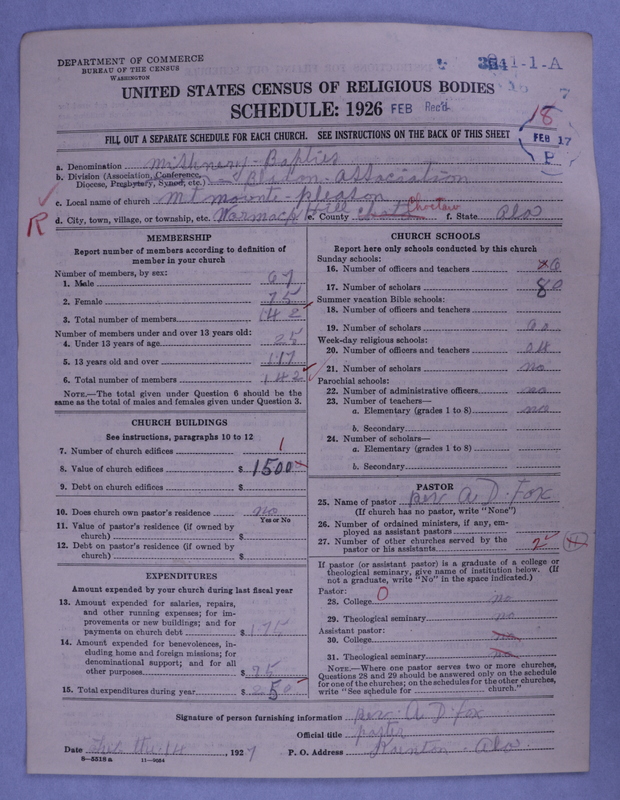 DEPARTMENT OF COMMERCE
BUREAU OF THE CENSUS
WASHINGTON
1-1-A
UNITED STATES CENSUS OF RELIGIOUS BODIES
SCHEDULE: 1926 FEB Rec'd
18
FEB 17
FILL OUT A SEPARATE SCHEDULE FOR EACH CHURCH. SEE INSTRUCTIONS ON THE BACK OF THIS SHEET
a. Denomination
b. Division (Association, Conference, Diocese, Presbytery, Synod, etc.) Association
c. Local name of church Mt
R
d. City, town, village, or township, etc. Warmack Hill e. County Choctaw f. State Ala
MEMBERSHIP
Report number of members according to definition of
member in your church
Number of members, by sex:
1. Male 67
2. Female 75
3. Total number of members 142
Number of members under and over 13 years old:
4. Under 13 years of age 25
5. 13 years old and over 117
6. Total number of members 142
NOTE.—The total given under Question 6 should be the
same as the total of males and females given under Question 3.
CHURCH BUILDINGS
See instructions, paragraphs 10 to 12
7. Number of church edifices 1
8. Value of church edifices $1500
9. Debt on church edifices $
10. Does church own pastor's residence no
Yes or No
11. Value of pastor's residence (if owned by
church) $
12. Debt on pastor's residence (if owned by
church) $
EXPENDITURES
Amount expended by your church during last fiscal year
13. Amount expended for salaries, repairs,
and other running expenses; for im-
provements or new buildings; and for
payments on church debt $175
14. Amount expended for benevolences, in-
cluding home and foreign missions; for
denominational support; and for all
other purposes $
15. Total expenditures during year $
CHURCH SCHOOLS
Report here only schools conducted by this church
Sunday schools:
16. Number of officers and teachers 6
17. Number of scholars 80
Summer vacation Bible schools:
18. Number of officers and teachers
19. Number of scholars
Week-day religious schools:
20. Number of officers and teachers
21. Number of scholars no
Parochial schools:
22. Number of administrative officers no
23. Number of teachers—
a. Elementary (grades 1 to 8) no
b. Secondary
24. Number of scholars—
a. Elementary (grades 1 to 8)
b. Secondary
PASTOR
25. Name of pastor Rev A D Fox
(If church has no pastor, write "None")
26. Number of ordained ministers, if any, em-
ployed as assistant pastors
27. Number of other churches served by the
pastor or his assistants 2
If pastor (or assistant pastor) is a graduate of a college or
theological seminary, give name of institution below. (If
not a graduate, write "No" in the space indicated.)
Pastor:
28. College 0 no
29. Theological seminary no
Assistant pastor:
30. College no
31. Theological seminary no
NOTE.—Where one pastor serves two or more churches,
Questions 28 and 29 should be answered only on the schedule
for one of the churches; on the schedules for the other churches,
write "See schedule for church."
Signature of person furnishing information Rev A D Fox
Official title paster
Date Feb the 14, 1927 P. O. Address Ala
8—5518 a 11—9684